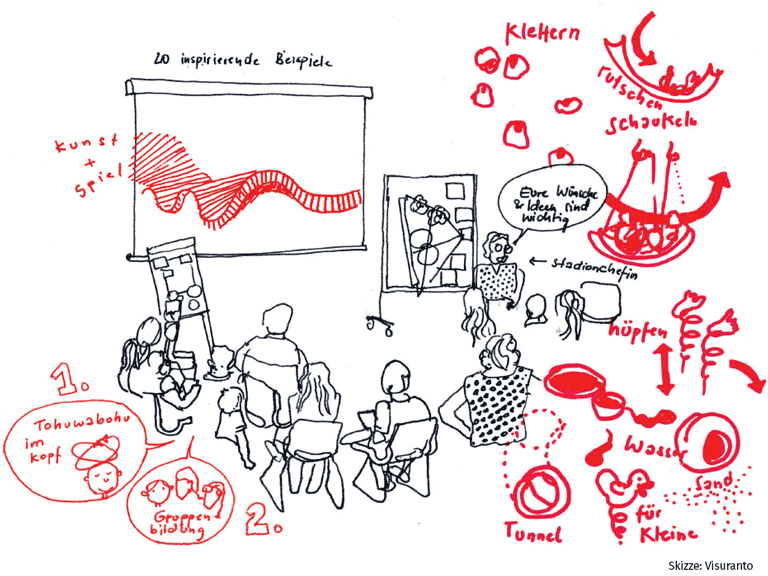 20 inspirierende Beispiele
Kunst
+
Spiel
Klettern
rutschen
schaukeln
Eure Wünsche
& Ideen sind
wichtig
← Stadionchefin
hüpfen
1.
Tohuwabohu
im
Kopf
Gruppen-
bildung
2.
Wasser
Sand
für
Kleine
Tunnel
Skizze: Visuranto